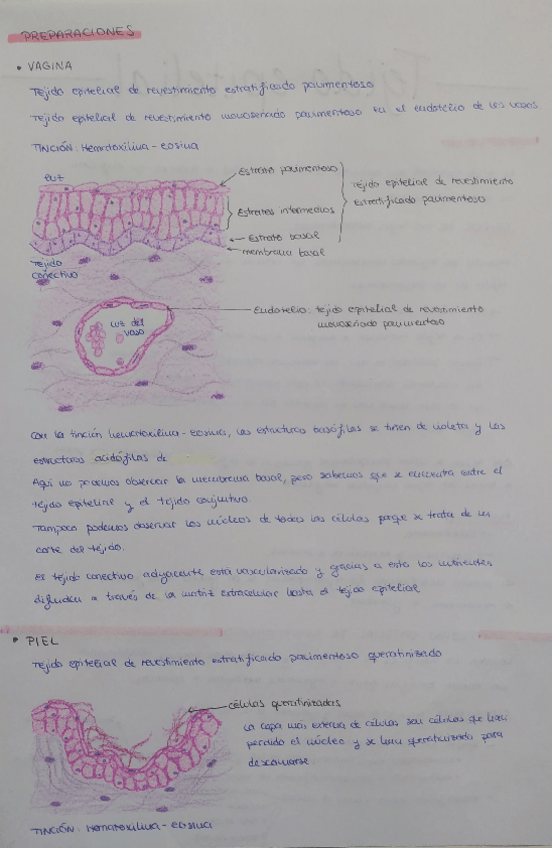 PREPARACIONES
• VAGINA
Tejido epitelial de revestimiento estratificado pavimentoso
Tejido epitelial de revestimiento monoseriado pavimentoso en el endotelio de los vasos
TINCIÓN: Hematoxilina - eosina
luz
Estrato pavimentoso
Estratos intermedios
Estrato basal
membrana basal
Tejido epitelial de revestimiento
Estratificado pavimentoso
Tejido
conectivo
luz del
vaso
Endotelio: tejido epitelial de revestimiento
monoseriado pavimentoso
Con la tinción hematoxilina-eosina, las estructuras basófilas se tiñen de violeta y las
estructuras acidófilas de
Aquí no podemos observar la membrana basal, pero sabemos que se encuentra entre el
tejido epitelial y el tejido conjuntivo.
Tampoco podemos observar los núcleos de todas las células porque se trata de un
corte del tejido.
El tejido conectivo adyacente está vascularizado y gracias a esto los nutrientes
difunden a través de la matriz extracelular hasta el tejido epitelial
• PIEL
Tejido epitelial de revestimiento estratificado pavimentoso queratinizado
células queratinizadas
La capa más externa de células son células que han
perdido el núcleo y se han queratinizado para
descamarse.
TINCIÓN: Hematoxilina - eosina